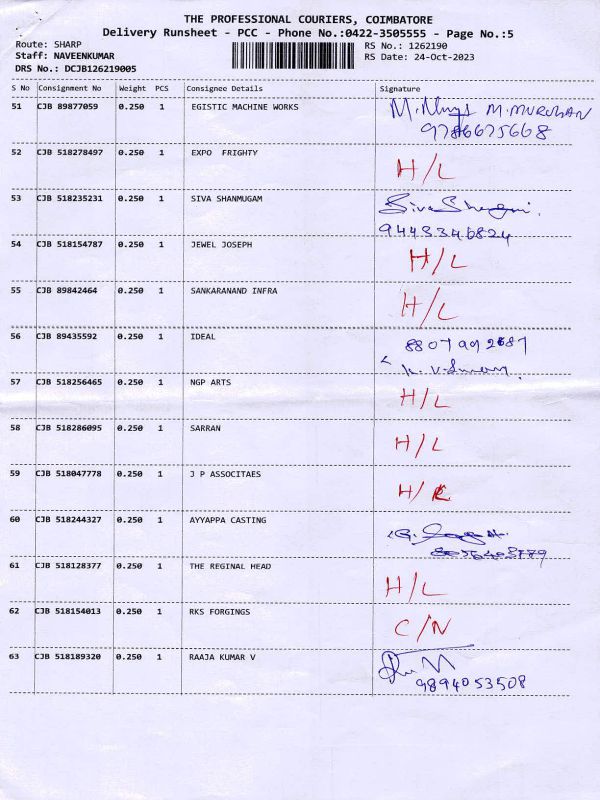 THE PROFESSIONAL COURIERS, COIMBATORE
Delivery Runsheet - PCC - Phone No.:0422-3505555 - Page No.:5
Route: SHARP RS No.: 1262190
Staff: NAVEENKUMAR RS Date: 24-Oct-2023
DRS No.: DCJB126219005
S No Consignment No Weight PCS Consignee Details Signature
51 CJB 89877059 0.250 1 EGISTIC MACHINE WORKS M. M.MURUGAN
9786675668
52 CJB 518278497 0.250 1 EXPO FRIGHTY H/L
53 CJB 518235231 0.250 1 SIVA SHANMUGAM Siva
9443346824
54 CJB 518154787 0.250 1 JEWEL JOSEPH H/L
55 CJB 89842464 0.250 1 SANKARANAND INFRA H/L
56 CJB 89435592 0.250 1 IDEAL
57 CJB 518256465 0.250 1 NGP ARTS H/L
58 CJB 518286095 0.250 1 SARRAN H/L
59 CJB 518047778 0.250 1 J P ASSOCITAES H/
60 CJB 518244327 0.250 1 AYYAPPA CASTING
61 CJB 518128377 0.250 1 THE REGINAL HEAD H/L
62 CJB 518154013 0.250 1 RKS FORGINGS C/N
63 CJB 518189320 0.250 1 RAAJA KUMAR V
9894053508